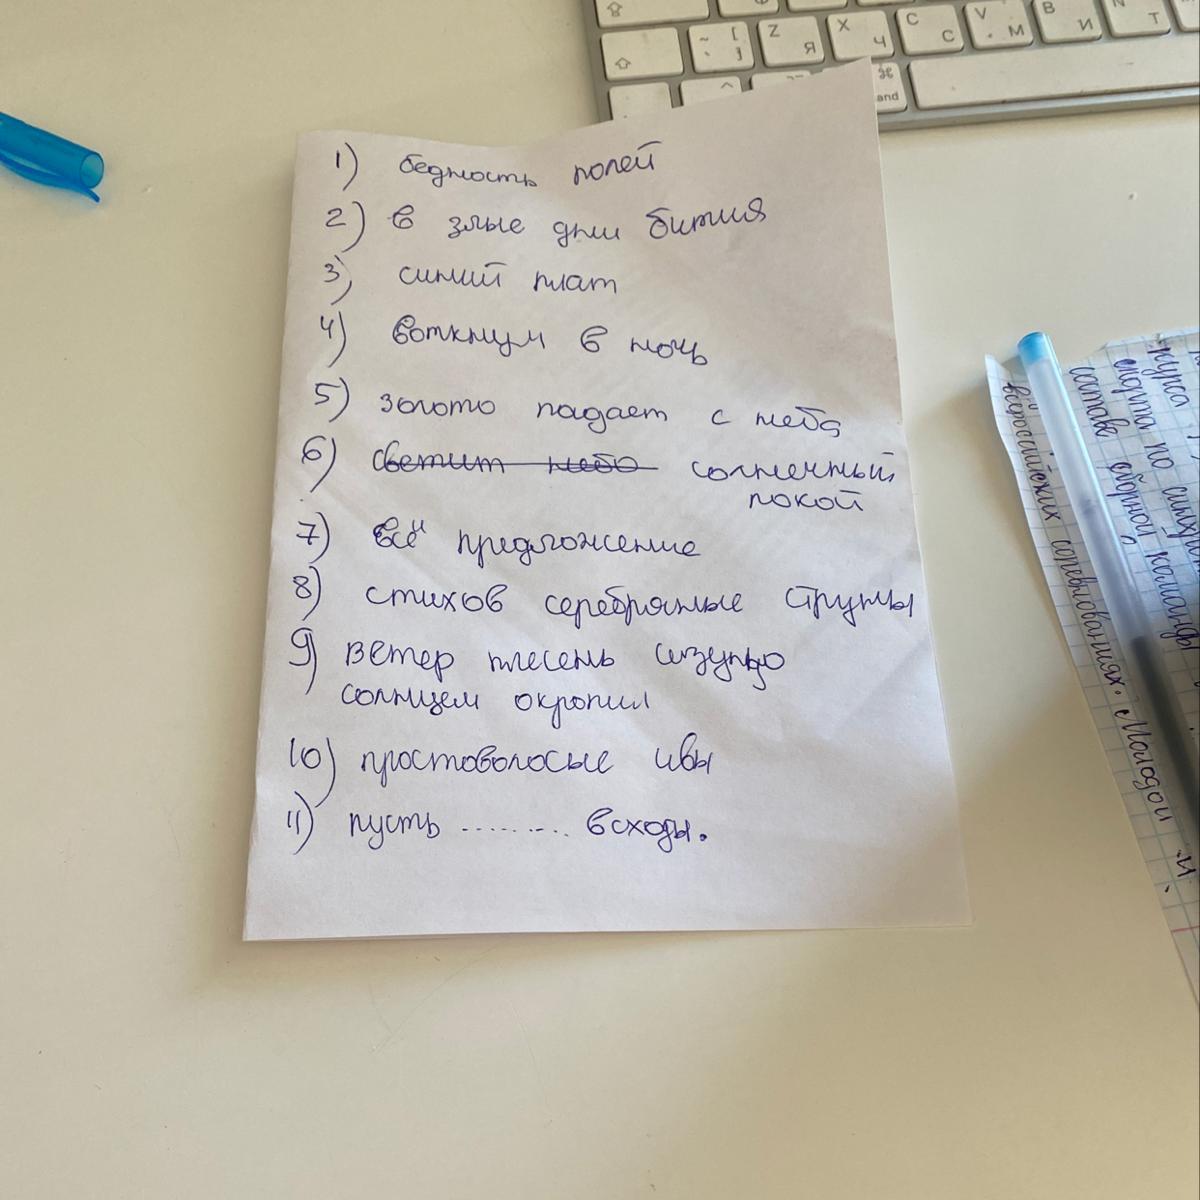 1) бедность полей
2) в злые дни бития
3) синий плат
4) воткнум в ночь
5) золото падает с неба
6) светит небо солнечный
покой
7) всё предложение
8) стихов серебряные струны
9) ветер плесень сизую
солнцем окропил
10) простоволосые ивы
11) пусть ......... всходы.
курса
спорта по синхрон
составе сборной команды
всероссийских соревнованиях. Молодой и
Z Я
X Ч
C С
V М
B И
N Т
and